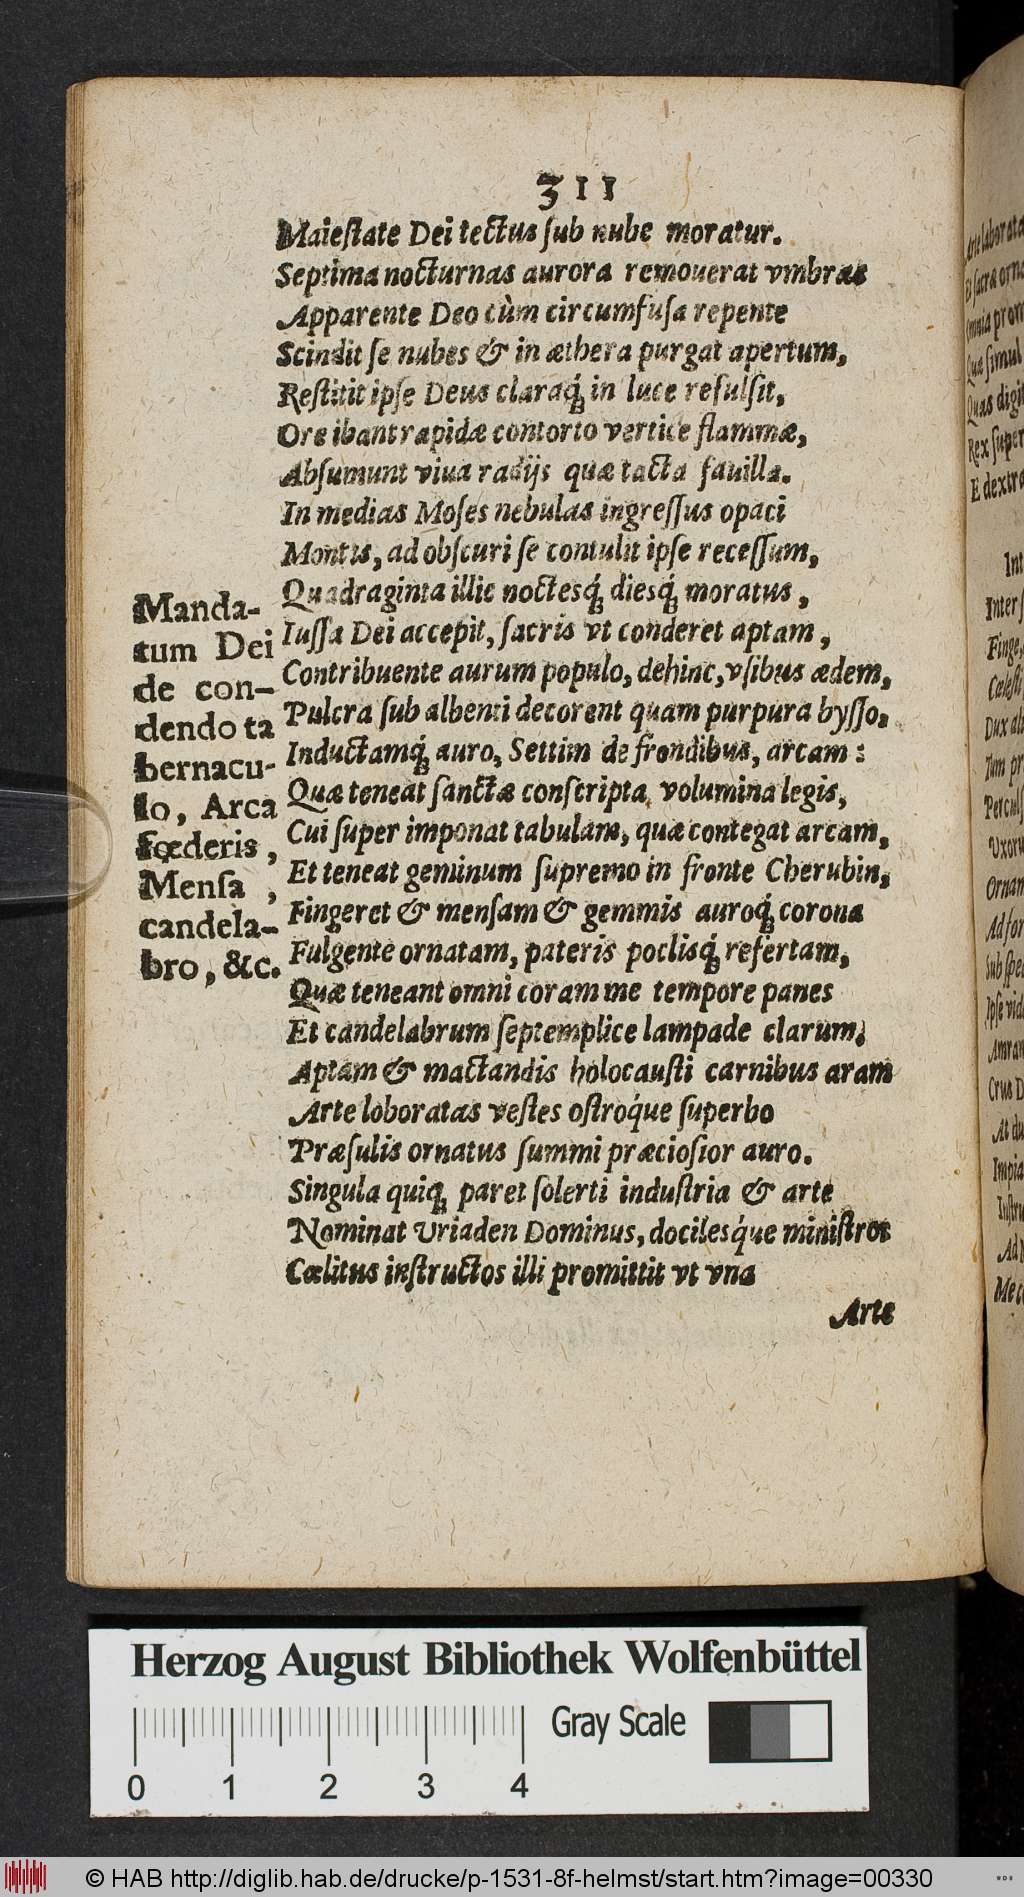 311
Maieſtate Dei tectus ſub nube moratur.
Septima nocturnas aurora remouerat vmbras
Apparente Deo cùm circumfuſa repente
Scindit ſe nubes & in æthera purgat apertum,
Reſtitit ipſe Deus claraq́; in luce refulſit,
Ore ibant rapidæ contorto vertice flammæ,
Abſumunt viua radijs quæ tacta fauilla.
In medias Moſes nebulas ingreſſus opaci
Montis, ad obſcuri ſe contulit ipſe receſſum,
Quadraginta illic noctesq́; diesq́; moratus,
Iuſſa Dei accepit, ſacris vt conderet aptam,
Contribuente aurum populo, dehinc, vſibus ædem,
Pulcra ſub albenti decorent quam purpura byſſo,
Inductamq́; auro, Settim de frondibus, arcam:
Quæ teneat ſanctæ conſcripta, volumina legis,
Cui ſuper imponat tabulam, quæ contegat arcam,
Et teneat geminum ſupremo in fronte Cherubin,
Fingeret & menſam & gemmis auroq́; corona
Fulgente ornatam, pateris poclisq́; refertam,
Quæ teneant omni coram me tempore panes
Et candelabrum ſeptemplice lampade clarum,
Aptam & mactandis holocauſti carnibus aram
Arte loboratas veſtes oſtroq́ue ſuperbo
Præſulis ornatus ſummi præcioſior auro.
Singula quiq; paret ſolerti induſtria & arte
Nominat Vriaden Dominus, docilesq́ue miniſtros
Cœlitus inſtructos illi promittit vt vna
Arte
Manda-
tum Dei
de con-
dendo ta
bernacu-
lo, Arca
fœderis,
Menſa,
candela-
bro, &c.
Arte laborata
Et ſacra orna
Omnia prom
Quæ ſimul
Quas digit
Rex ſuper
E dextra
Int
Inter ſ
Finge,
Cœleſti
Dux al
Tum pr
Perculſ
Vxoru
Ornam
Ad for
Sub ſpec
Ipſe vid
Amram
Crus D
At du
Impia
Inſtru
Ad
Me c
Herzog August Bibliothek Wolfenbüttel
Gray Scale
0 1 2 3 4
© HAB http://diglib.hab.de/drucke/p-1531-8f-helmst/start.htm?image=00330